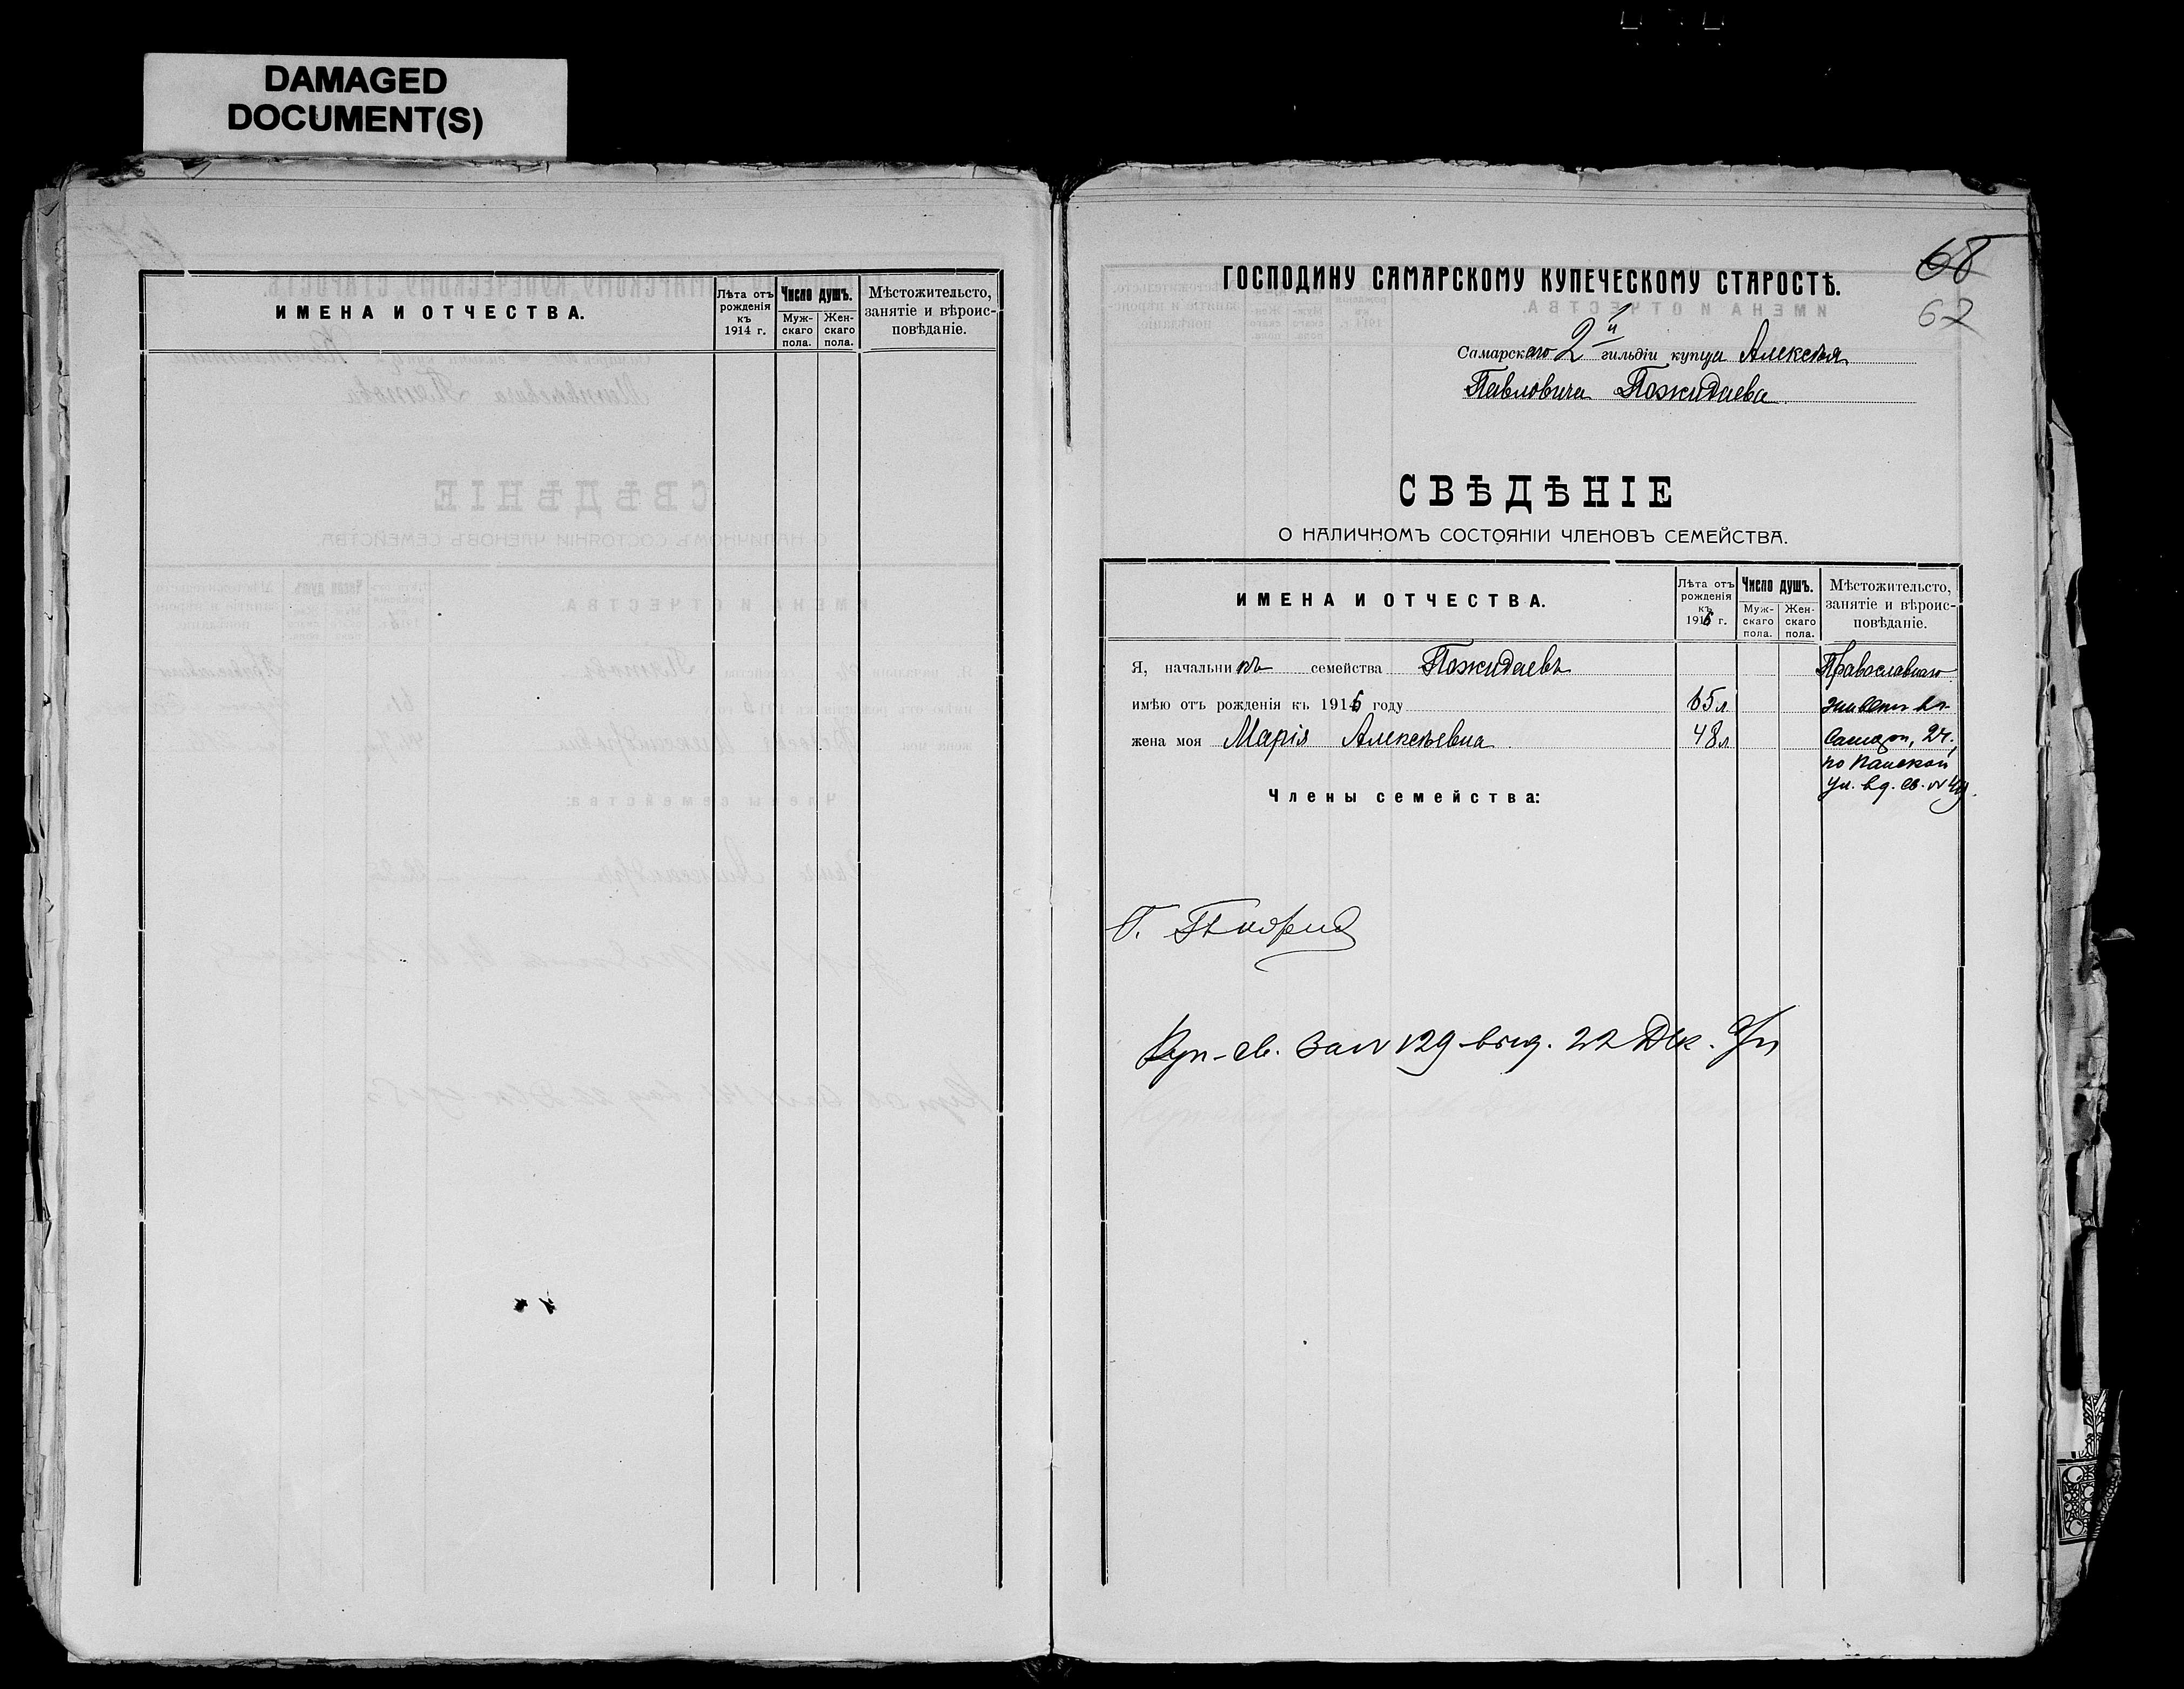 DAMAGED
DOCUMENT(S)
ИМЕНА И ОТЧЕСТВА.
Лѣта отъ рожденія къ 1914 г.
Число душъ.
Муж-скаго пола.
Жен-скаго пола.
Мѣстожительсто, занятіе и вѣроис-повѣданіе.
68
67
ГОСПОДИНУ САМАРСКОМУ КУПЕЧЕСКОМУ СТАРОСТѢ.
Самарскаго 2й гильдіи купца Алексѣя
Павловича Пожидаева
СВѢДѢНІЕ
О НАЛИЧНОМЪ СОСТОЯНІИ ЧЛЕНОВЪ СЕМЕЙСТВА.
ИМЕНА И ОТЧЕСТВА.
Лѣта отъ рожденія къ 1916 г.
Число душъ.
Муж-скаго пола.
Жен-скаго пола.
Мѣстожительсто, занятіе и вѣроис-повѣданіе.
Я, начальникъ семейства Пожидаевъ
Православнаго
имѣю отъ рожденія къ 1916 году 65 л
живетъ въ
жена моя Марія Алексѣевна 48 л
Самарѣ, 2 ч.,
по Панской
ул. в д. св. №49.
Члены семейства:
Куп-св. за № 129 выд. 22 Дек.